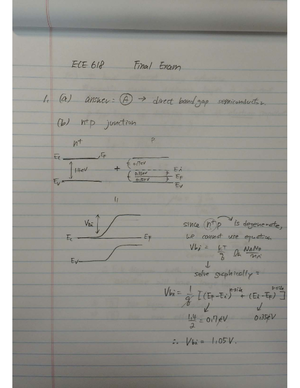 ECE 618 Final Exam
1. (a) answer: Ⓐ → direct bandgap semiconductor
(b) n+p junction
n+
Ec EF
1.4eV +
Ev
Ei
EF
Ev
Vbi
Ec EF
Ev
since n+p is degenerate,
we cannot use equation
Vbi = kT/q ln NAND/ni²
↓
solve graphically
Vbi = 1/q [(EF-Ei) n-side + (Ei-EF) p-side]
1.4/2 = 0.7eV 0.35eV
∴ Vbi = 1.05V.